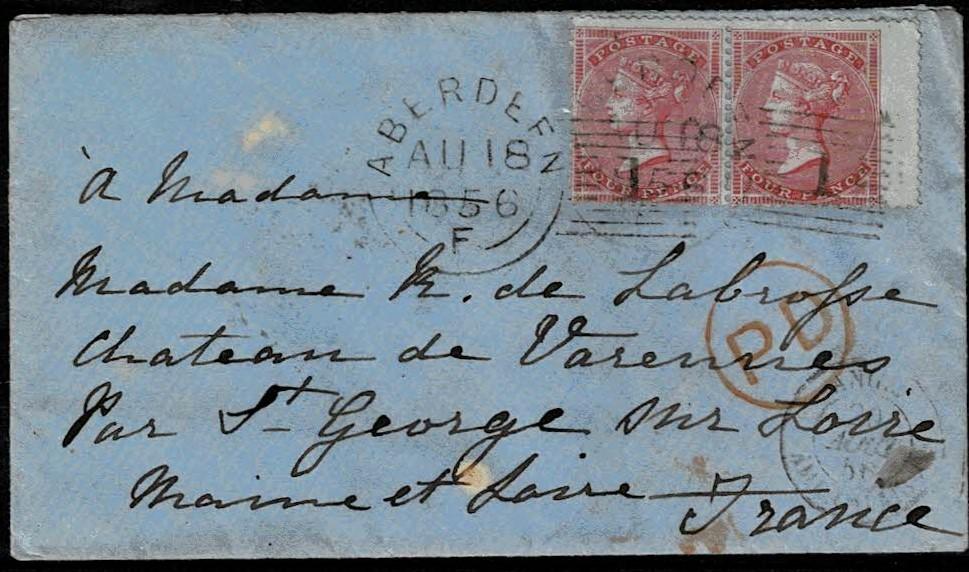 POSTAGE POSTAGE
FOUR PENCE FOUR PENCE
1 1
ABERDEEN
AU 18
1856
F
à Madame
Madame R. de Labrosse
PD
Chateau de Varennes
Par St George sur Loire
Maine et Loire - France